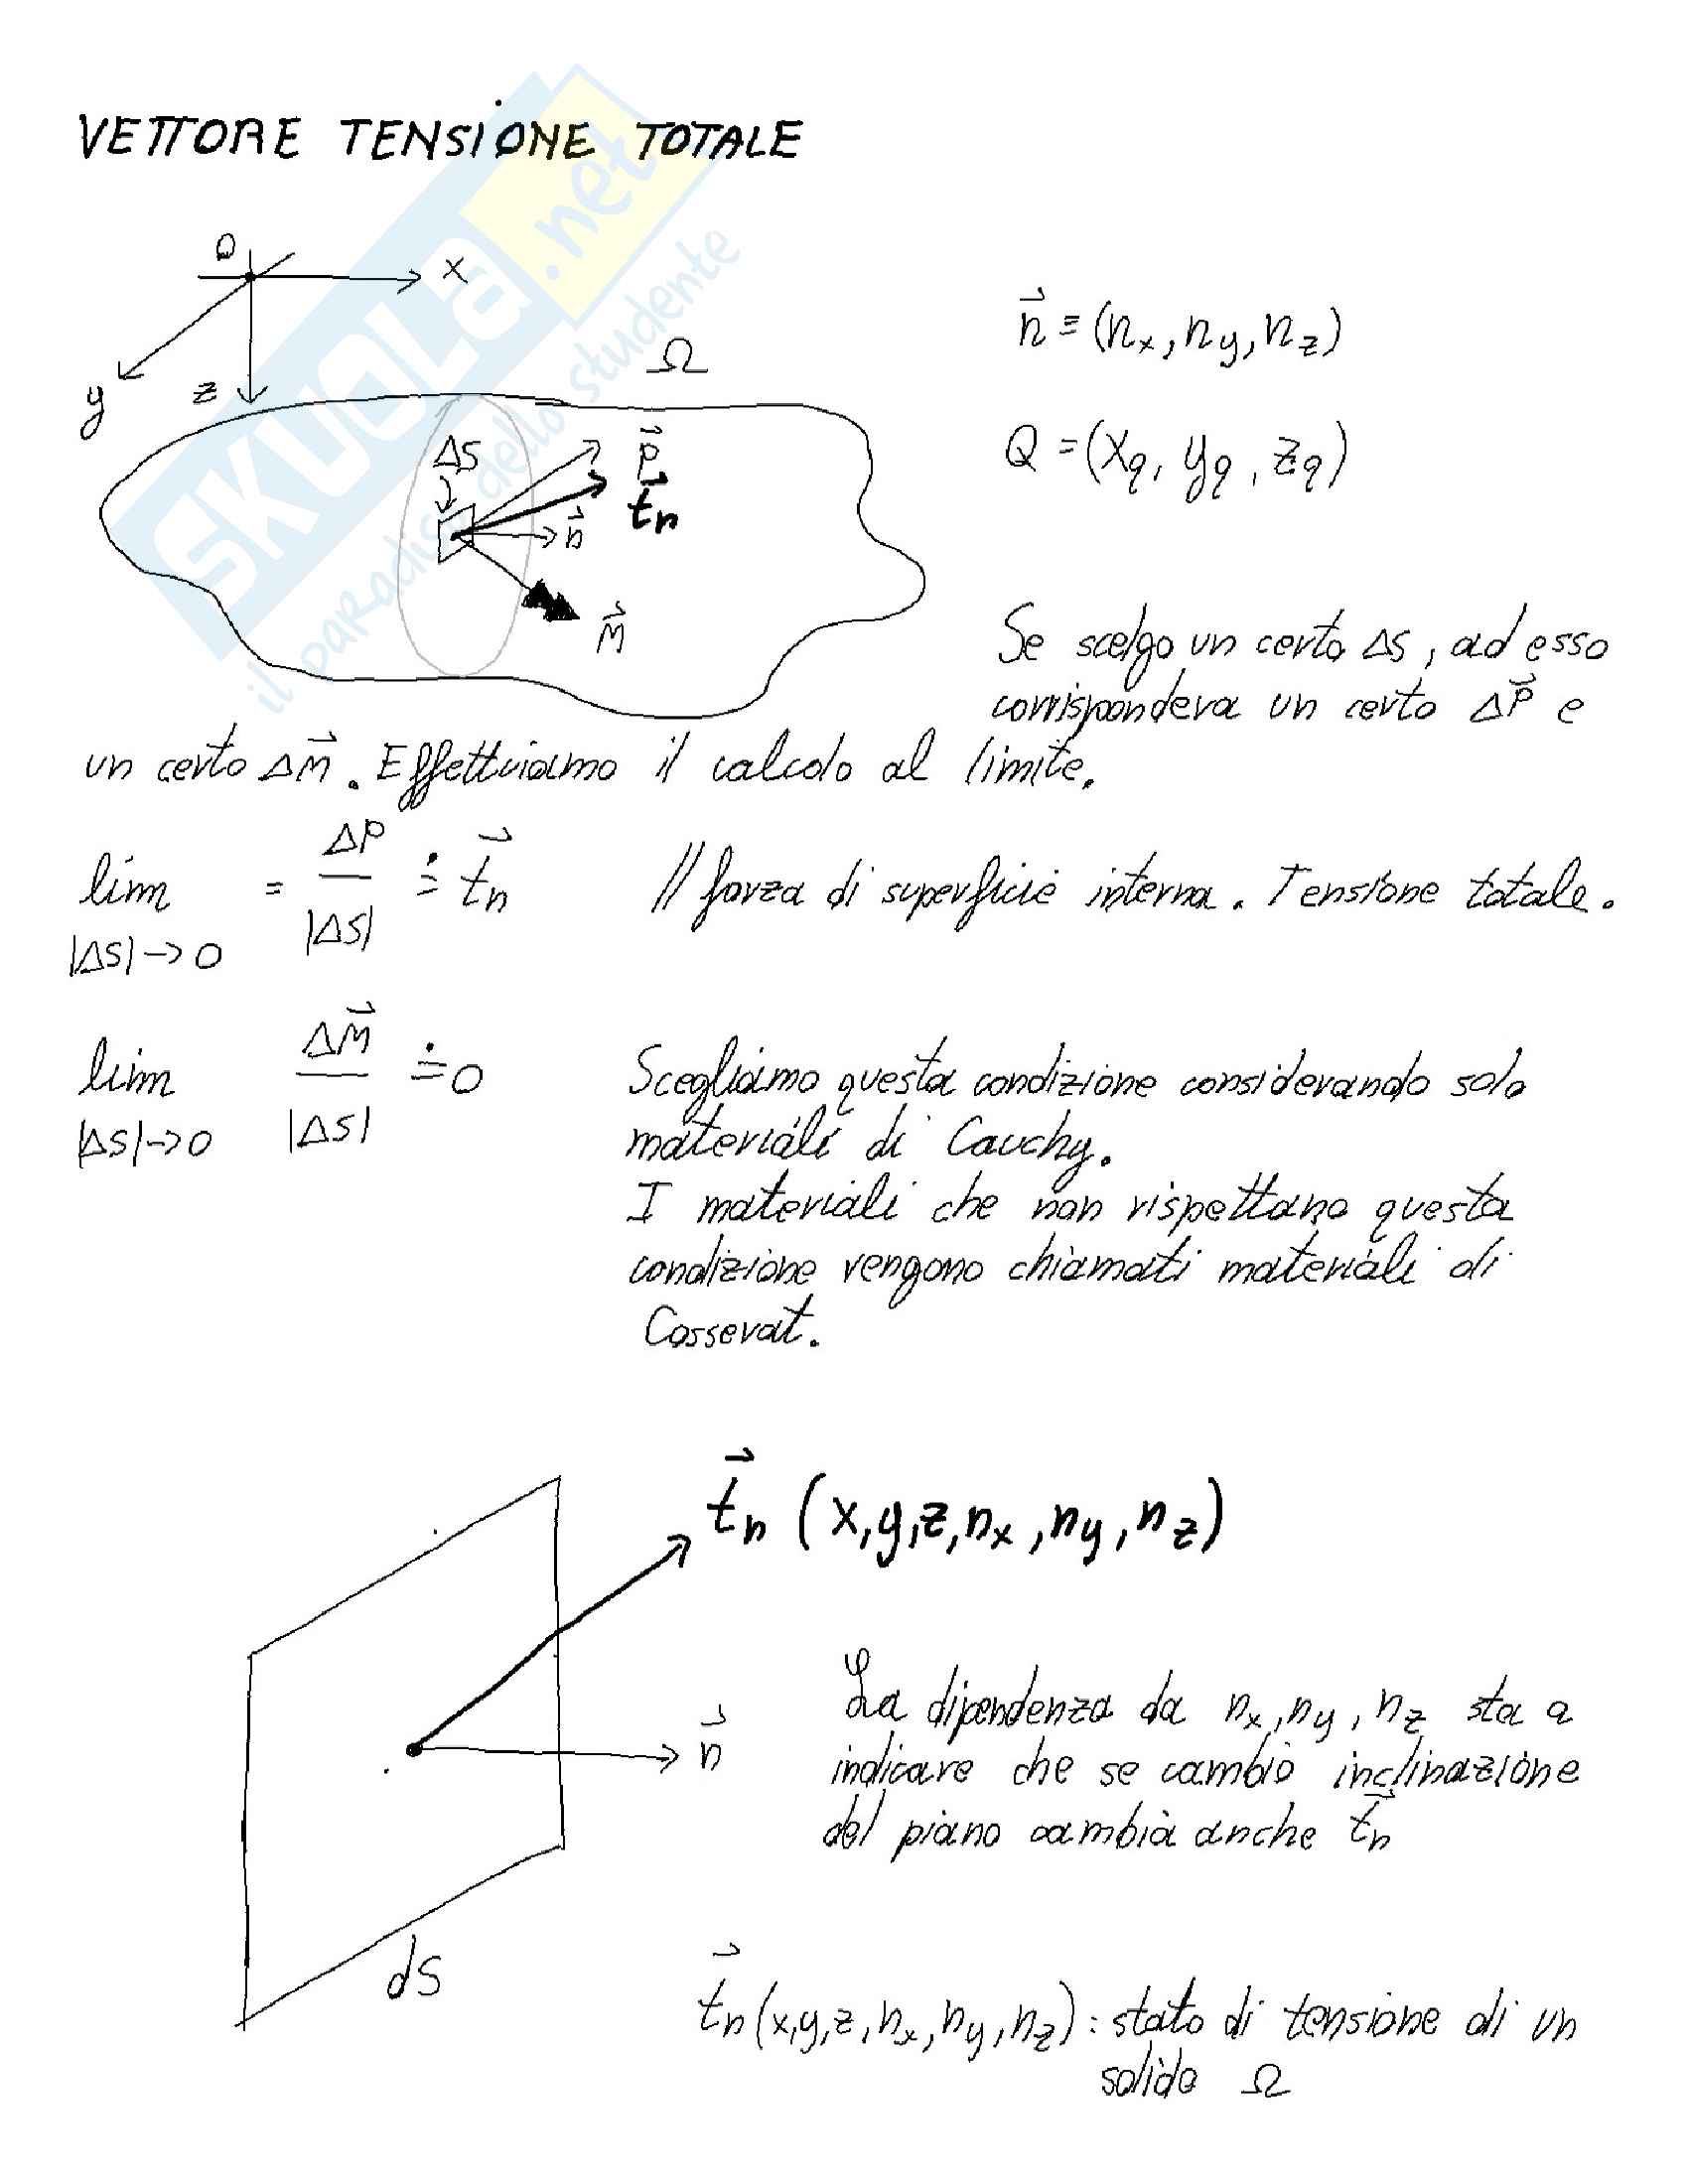 VETTORE TENSIONE TOTALE
SKUOLA.net
il paradiso dello studente
O
x
y
z
Ω
ΔS
p⃗
t⃗n
n⃗
M⃗
n⃗ ≡ (nx, ny, nz)
Q = (xq, yq, zq)
Se scelgo un certo ΔS, ad esso
corrispondera un certo ΔP⃗ e
un certo ΔM⃗. Effettuiamo il calcolo al limite.
lim |ΔS|→0 = ΔP / |ΔS| ≐ t⃗n // forza di superficie interna. Tensione totale.
lim |ΔS|→0 ΔM⃗ / |ΔS| ≐ 0 Scegliamo questa condizione considerando solo
materiali di Cauchy.
I materiali che non rispettano questa
condizione vengono chiamati materiali di
Cosserat.
t⃗n (x,y,z,nx,ny,nz)
n⃗
dS
La dipendenza da nx, ny, nz sta a
indicare che se cambio inclinazione
del piano cambia anche t⃗n
t⃗n (x,y,z,nx,ny,nz): stato di tensione di un
solido Ω